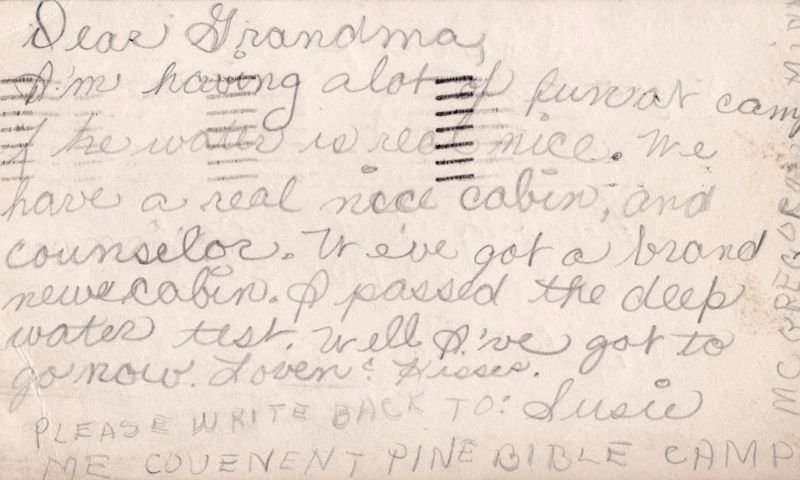 Dear Grandma,
I'm having alot of fun at camp
The water is real nice. We
have a real nice cabin, and
counselor. We've got a brand
new cabin. I passed the deep
water test. Well I've got to
go now. Loven & Kisses.
PLEASE WRITE BACK TO: Susie
ME COVENENT PINE BIBLE CAMP
MC GREGOR MINN